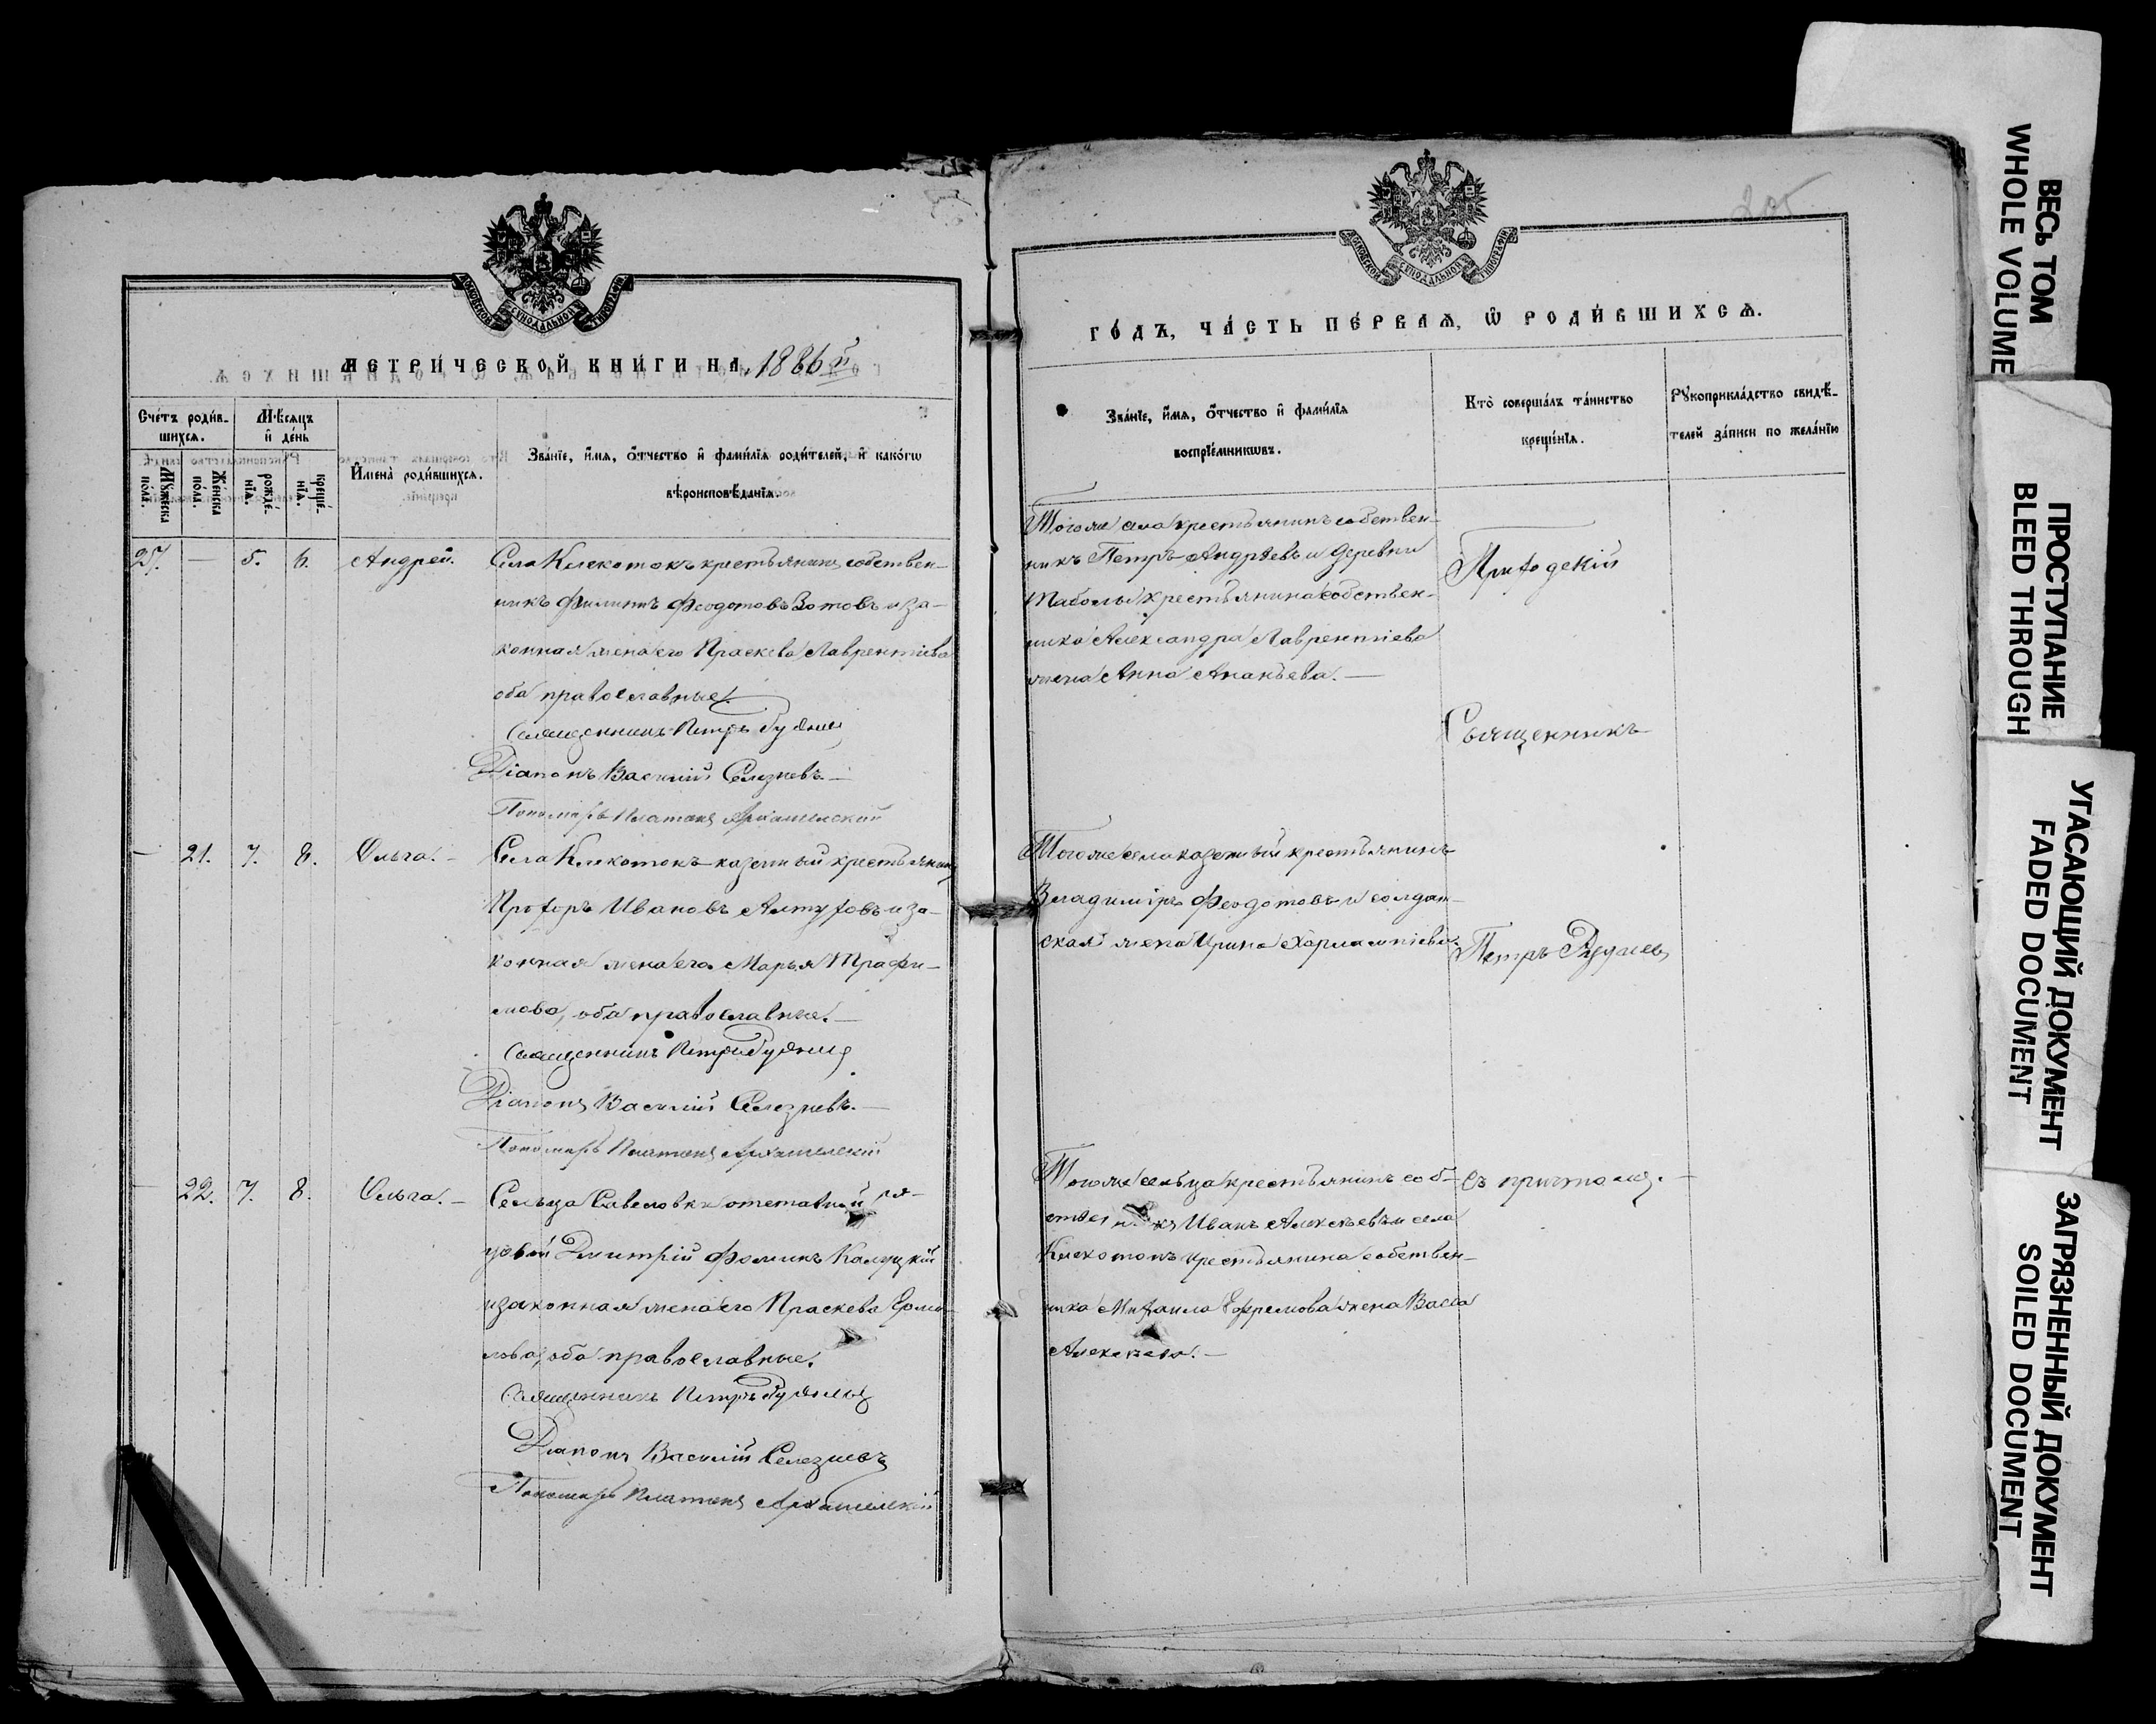 МЕТРИЧЕСКОЙ КНИГИ НА 1886й
Счетъ родив-
шихся.
Мѣсяцъ
и день
Мужеска
пола.
Женска
пола.
рожде-
нія.
креще-
нія.
Имена родившихся.
Званіе, имя, отчество и фамилія родителей, и какого
вѣроисповѣданія.
27. — 5. 6. Андрей. Села Клекотокъ крестьянинъ собствен-
никъ Филиппъ Феодотовъ Зотовъ и за-
конная жена его Праскева Лаврентіева
оба православные.
Священникъ Петръ Руднев
Діаконъ Василій Селезневъ.—
Пономарь Платонъ Архангельский
— 21. 7. 8. Ольга.— Села Клекотокъ казенный крестьянинъ
Прохоръ Ивановъ Алтуховъ и за-
конная жена его Марья Трафи-
мова, оба православные.—
Священникъ Петръ Руднев
Діаконъ Василій Селезневъ.—
Пономарь Платонъ Архангельскій
— 22. 7. 8. Ольга.— Сельца Савеловки отставной ря-
довой Дмитрій Фоминъ Калуцкій
и законная жена его Праскева Ерми-
лова, оба православные.
Священникъ Петръ Руднев
Діаконъ Василій Селезневъ
Пономарь Платонъ Архангельскій
205
ГОДЪ, ЧАСТЬ ПЕРВАЯ, Ѡ РОДИВШИХСЯ.
Званіе, имя, отчество и фамилія
воспріемниковъ.
Кто совершалъ таинство
крещенія.
Рукоприкладство свидѣ-
телей записи по желанію
Тогоже села крестьянинъ собствен-
никъ Петръ Андрѣевъ и деревни
Таболы крестьянина собствен-
ника Александра Лаврентіева
жена Анна Ананьева.—
Приходскій
Священникъ
Тогоже села казенный крестьянинъ
Владиміръ Феодотовъ и солдат-
ская жена Ирина Харлампіева.
Петръ Руднев
Тогоже сельца крестьянинъ соб-
ственникъ Иванъ Алексѣевъ и села
Клекотокъ крестьянина собствен-
ника Михаила Ефремова жена Васса
Алексѣева.—
съ причтомъ.—
ВЕСЬ ТОМ
WHOLE VOLUME
ПРОСТУПАНИЕ
BLEED THROUGH
УГАСАЮЩИЙ ДОКУМЕНТ
FADED DOCUMENT
ЗАГРЯЗНЕННЫЙ ДОКУМЕНТ
SOILED DOCUMENT
МОСКОВСКОЙ СѴНОДАЛЬНОЙ ТИПОГРАФІИ
МОСКОВСКОЙ СѴНОДАЛЬНОЙ ТИПОГРАФІИ